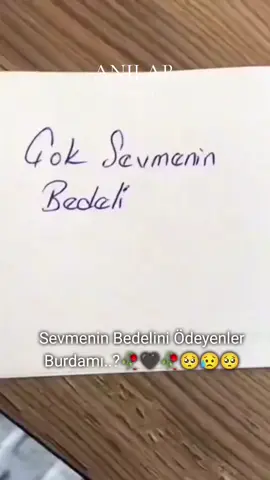 ANILAR
Çok Sevmenin
Bedeli
Sevmenin Bedelini Ödeyenler
Burdamı..?🥀🖤🥀🥺😥🥺